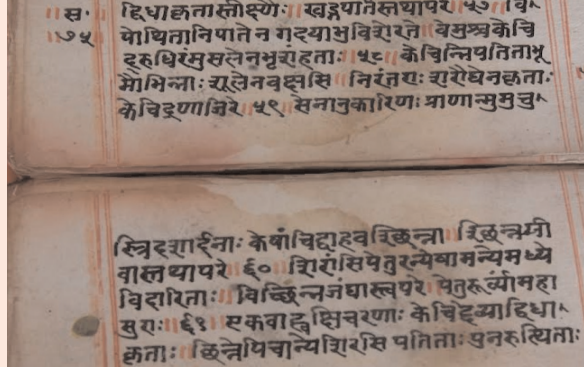 ॥स॰ द्विधाकृतास्तीक्ष्णैः॥खड्गपातैस्तथापरे॥५७॥वि
७५ पोथितानिपातेनगदयाभुविशेरते॥वेमुश्चकेचि
द्रुधिरंमुसलेनभृशंहताः॥५८॥केचिन्निपतिताभू
मौभिन्नाः शूलेनवक्षसि॥निरंतराः शरौघेनकृताः
केचिद्रणाजिरे॥५९॥सेनानुकारिणः प्राणान्मुमुचु
स्त्रिदशार्दनाः केषांचिद्बाहवश्छिन्ना॥श्छिन्नग्री
वास्तथापरे॥६०॥शिरांसिपेतुरन्येषामन्येमध्ये
विदारिताः॥विच्छिन्नजंघास्त्वपरे॥पेतुरुर्व्यांमहा
सुराः॥६१॥एकबाह्वक्षिचरणाः केचिद्देव्याद्विधा
कृताः॥छिन्नेपिचान्येशिरसिपतिताः पुनरुत्थिताः